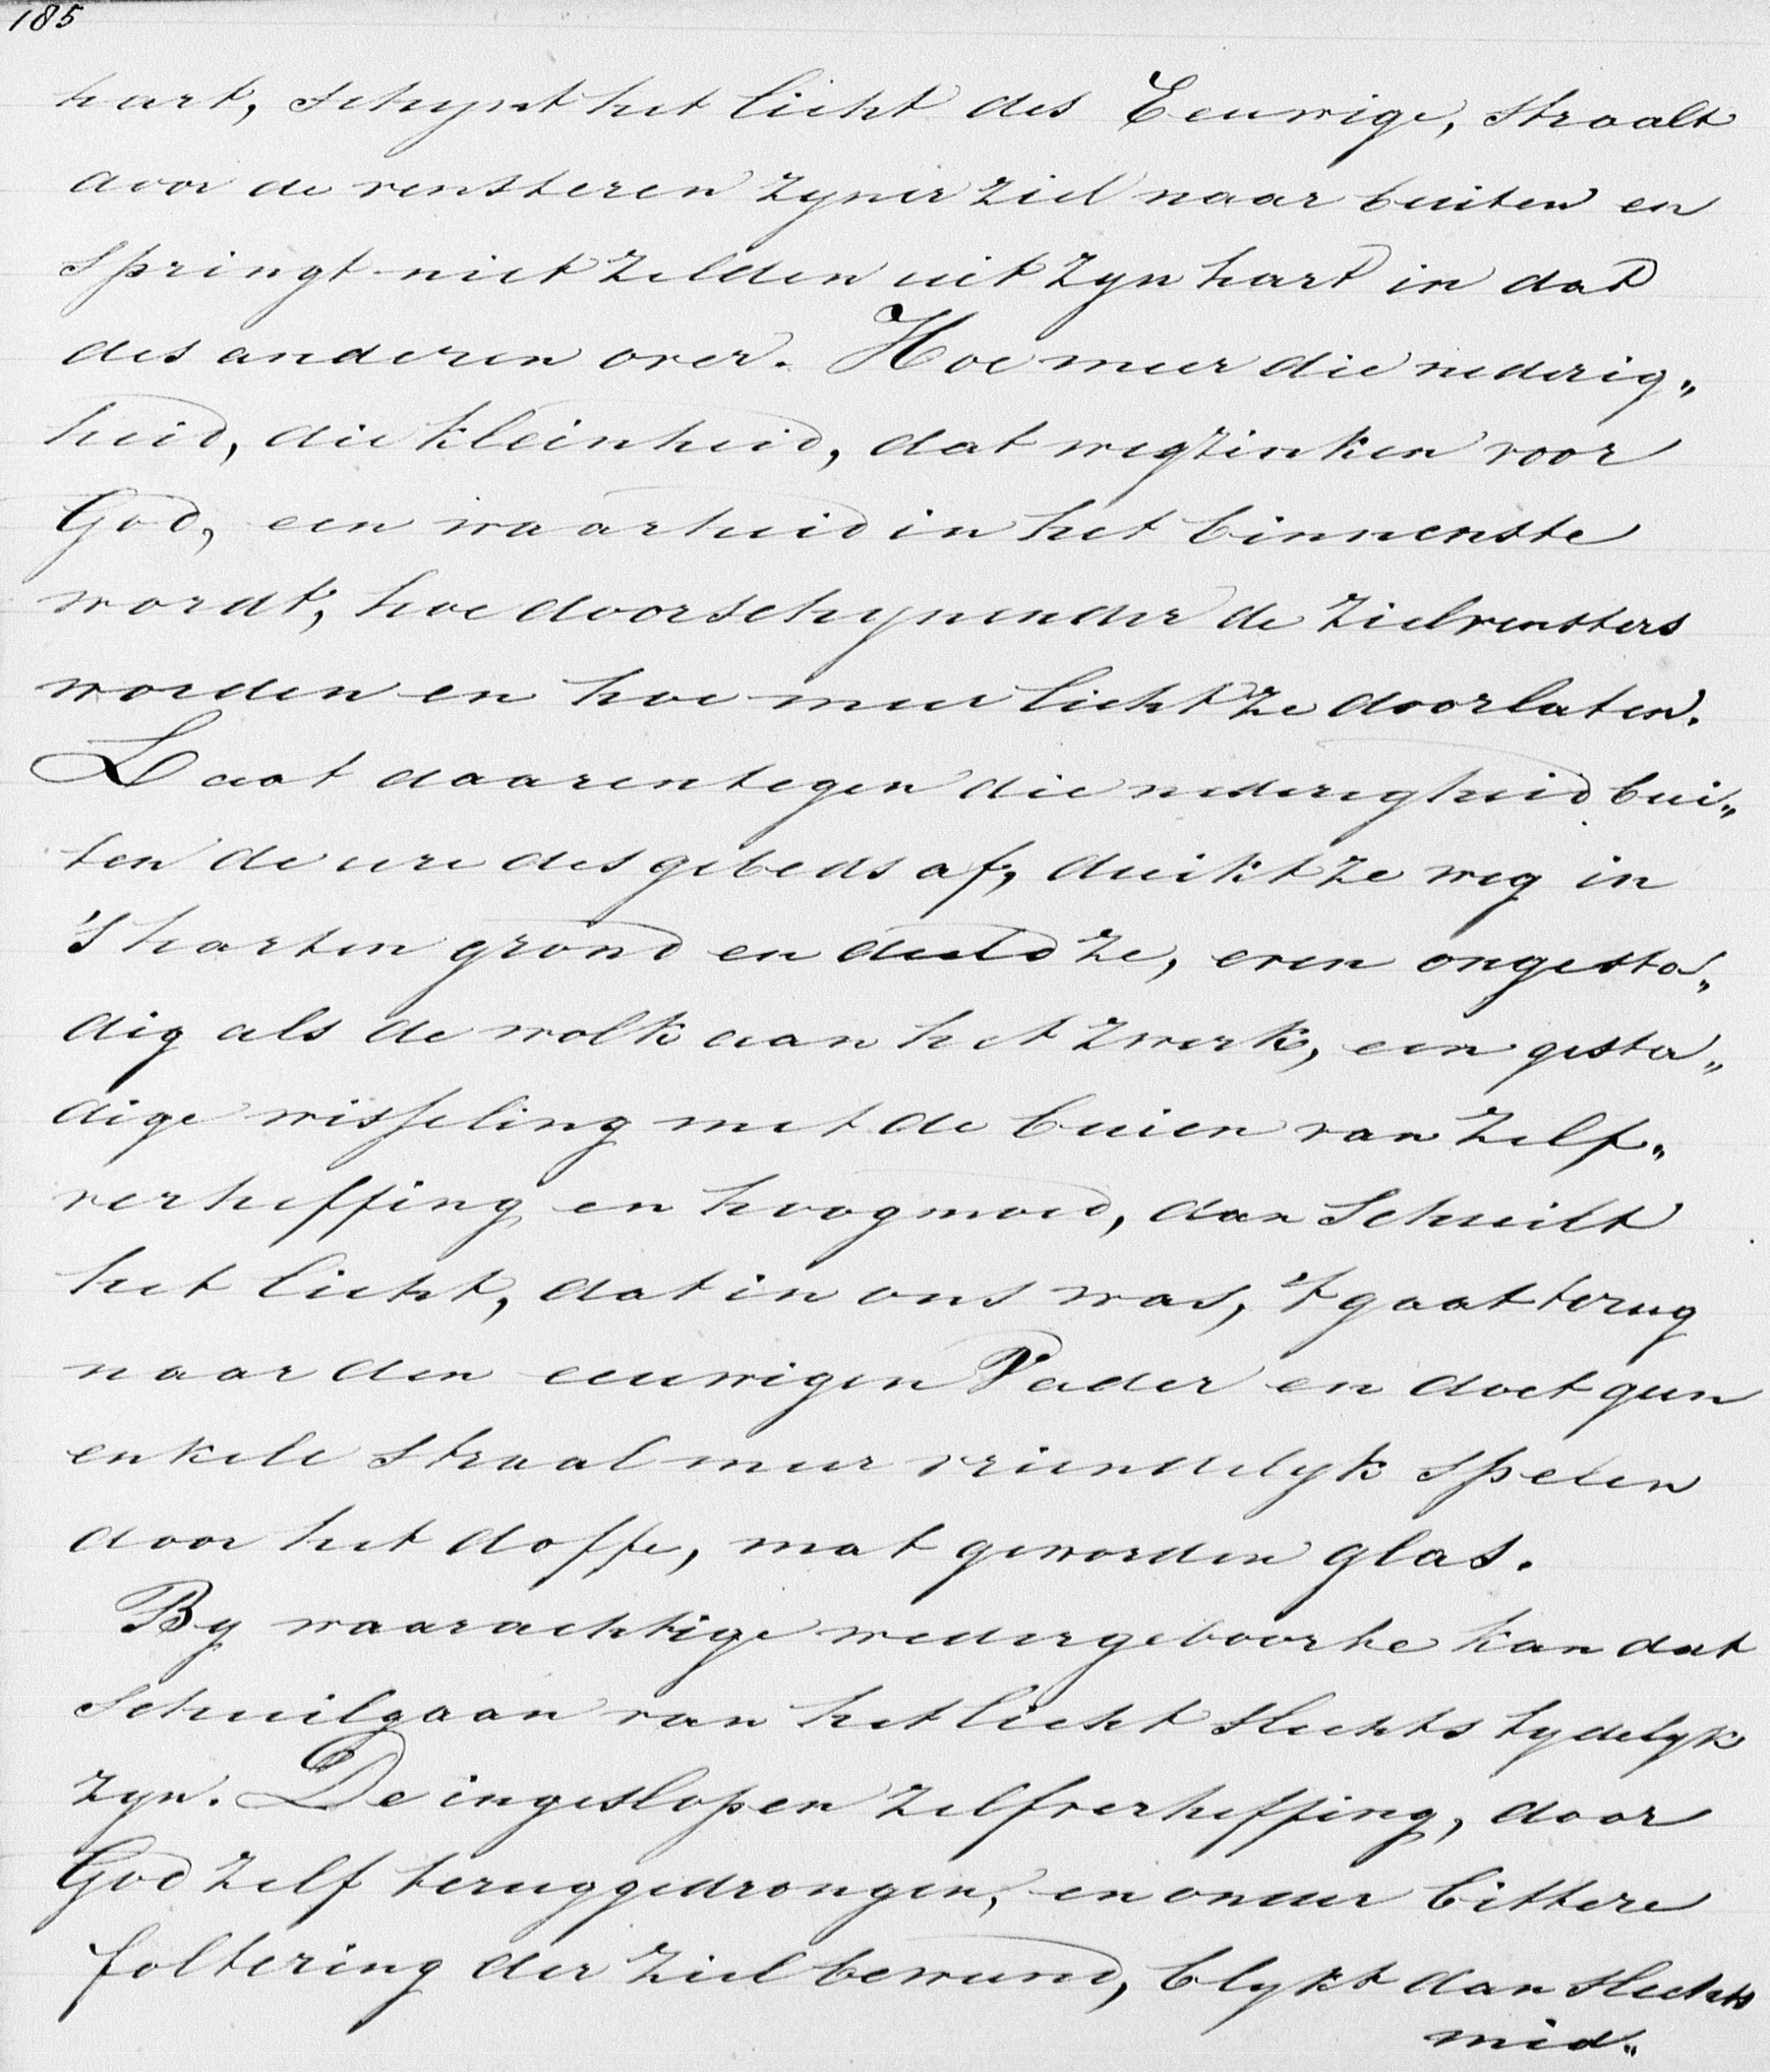 185
hart, schynt het licht des Eeuwige, straalt
door de vensteren zyner ziel naar buiten en
springt niet zelden uit zyn hart in dat
des anderen over. Hoe meer die nederig„
heid, die kleinheid, dat wegzinken voor
God, een waarheid in het binnenste
wordt, hoe doorschynender de zielvensters
worden en hoe meer licht ze doorlaten.
Laat daarentegen die nederigheid bui„
ten de ure des gebeds af, duikt ze weg in
's harten grond en duldze, even ongesta„
dig als de wolk aan het zwerk, een gesta„
dige wisseling met de buien van zelf„
verheffing en hoogmoed, dan schuilt
het licht, dat in ons was, 't gaat terug
naar den eeuwigen Vader en doet geen
enkele straal meer vriendelyk spelen
door het doffe, mat geworden glas.
By waarachtige wedergeboorte kan dat
schuilgaan van het licht slechts tydelyk
zyn. De ingeslopen zelfverheffing, door
God zelf teruggedrongen, en onder bittere
foltering der ziel beweend, blykt dan slechts
mid„